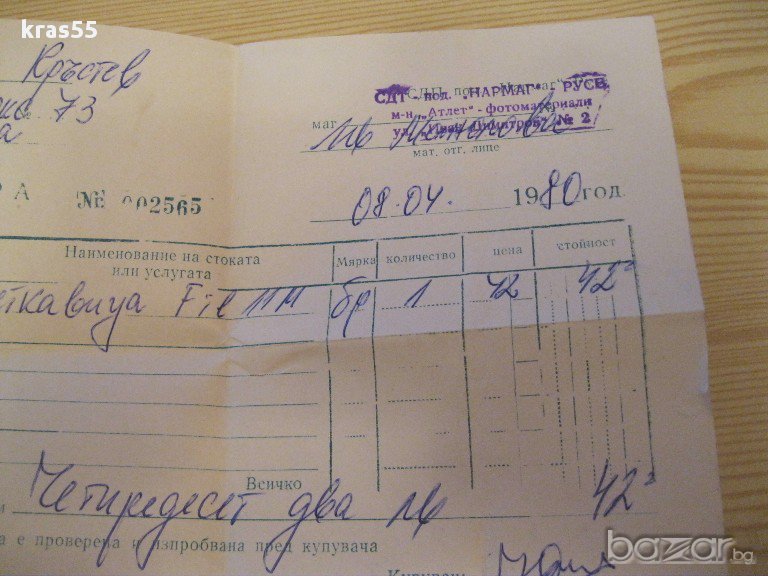 kras55
Кръстев
73
а
СДП - под. „НАРМАГ" - РУСЕ
м-н „Атлет" - фотоматериали
ул. „Иван Димитров" № 2
маг
мат. отг. лице
РА № 002565
08.04. 1980 год
Наименование на стоката или услугата Мярка количество цена стойност
бр 1 42 42
Всичко
Четиредесет два лв 42
а е проверена и изпробвана пред купувача
Купувач
bazar.bg